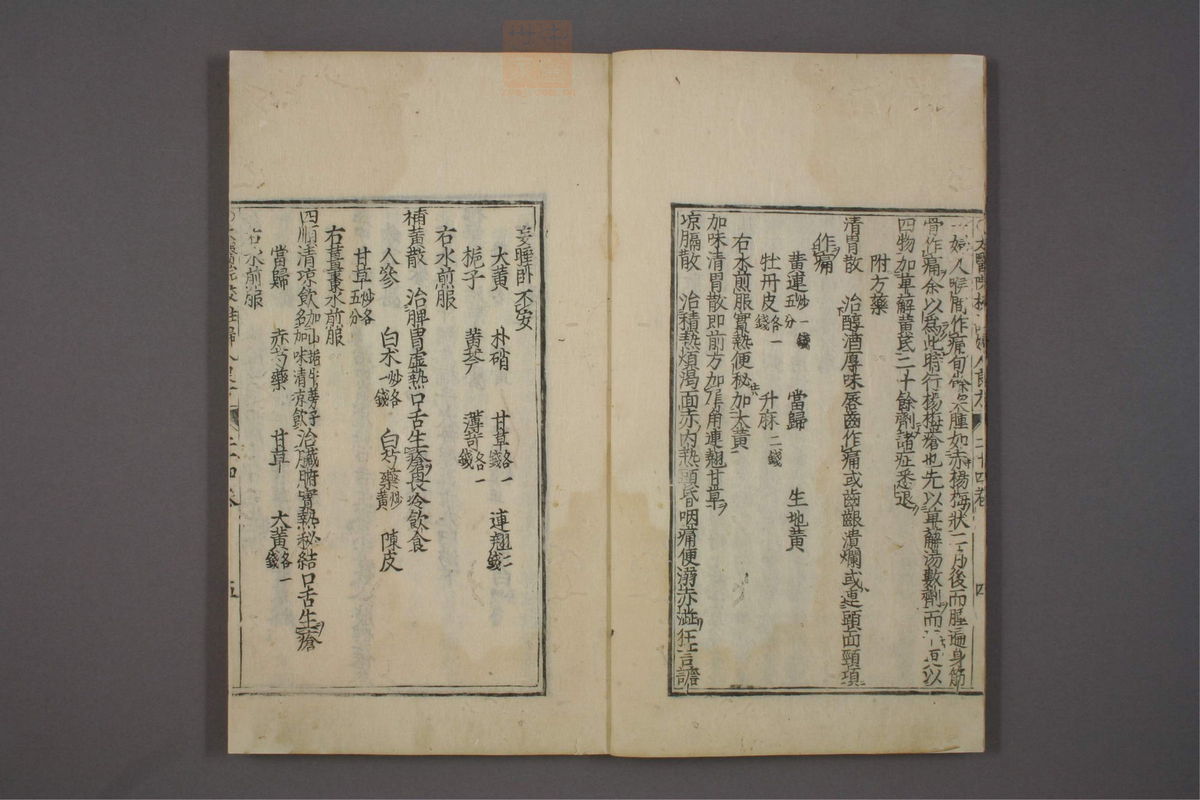 一婦人喉間作痛旬餘突腫如赤楊梅狀二月後而腫遍身筋
骨作痛余以爲此時行楊梅瘡也先以萆薢湯數劑而 更以
四物加萆薢黃芪二十餘劑諸症悉退
附方藥
清胃散 治醇酒厚味唇齒作痛或齒齦潰爛或連頭面頸項
作痛
黃連炒一錢五分 當歸 生地黃
牡丹皮各一錢 升麻二錢
右水煎服實熱便秘加大黃
加味清胃散即前方加犀角連翹甘草
凉膈散 治積熱煩渴面赤內熱頭昏咽痛便溺赤澁狂言譫
二十四卷 四
妄睡臥不安
大黃 朴硝 甘草各一錢 連翹二錢
梔子 黃芩 薄荷各一錢
右水煎服
補黃散 治脾胃虛熱口舌生瘡畏冷飲食
人參 白朮炒各一錢 白芍藥炒黃 陳皮
甘草炒各五分
右薑棗水煎服
四順清凉飲加山梔牛蒡子名加味清凉飲治臟腑實熱秘結口舌生瘡
當歸 赤芍藥 甘草 大黃各一錢
右水煎服
五